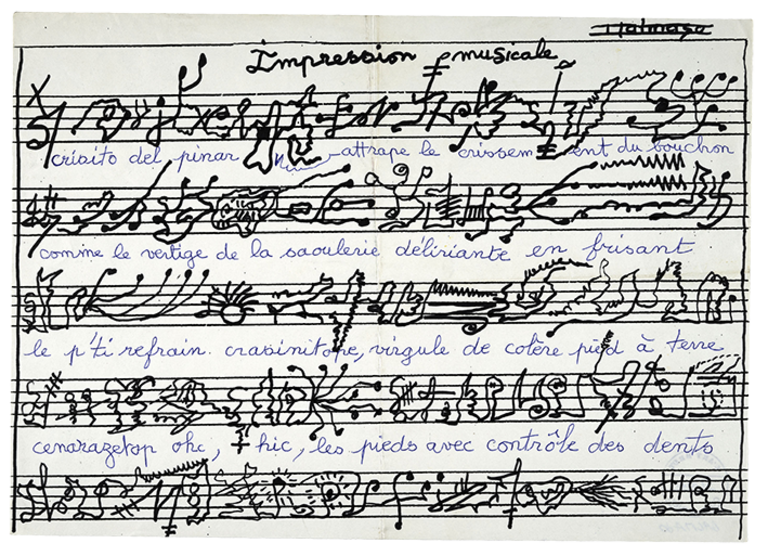 Impression musicale
crisito del pinar attrape le crissement du bouchon
comme le vertige de la saoulerie déliriante en frisant
le p'ti refrain. crasinitone, virgule de colère pied à terre
cenarazetop ohc, hic, les pieds avec contrôle des dents